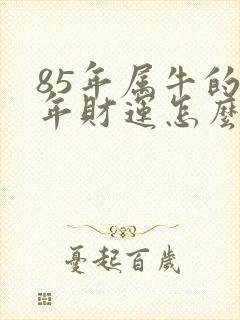 85年属牛的
年财运怎麽
憂起百歲